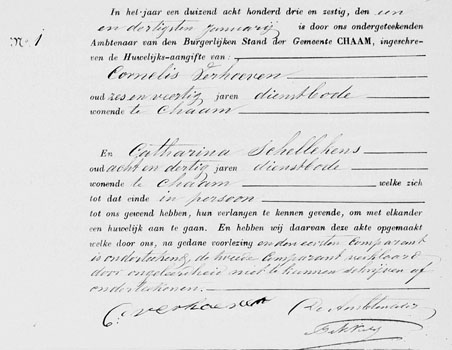 In het jaar een duizend acht honderd drie en zestig, den een
en dertigsten januarij is door ons ondergeteekenden
No. 1
Ambtenaar van den Burgerlijken Stand der Gemeente CHAAM, ingeschre-
ven de Huwelijks-aangifte van:
Cornelis Verhoeven
oud zes en veertig jaren dienstbode
wonende te Chaam
En Catharina Schellekens
oud acht en dertig jaren dienstbode
wonende te Chaam welke zich
tot dat einde in persoon
tot ons gewend hebben, hun verlangen te kennen gevende, om met elkander
een huwelijk aan te gaan. En hebben wij daarvan deze akte opgemaakt
welke door ons, na gedane voorlezing en den eersten Comparant
is onderteekend, de tweede Comparant verklaard
door ongeleerdheid niet te kunnen schrijven of
onderteekenen.
C: verhoeven
De Ambtenaar